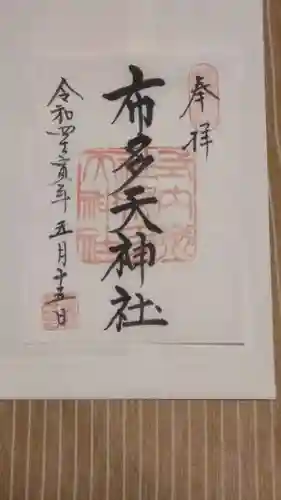 奉拝
布多天神社
令和四壬寅年五月十五日